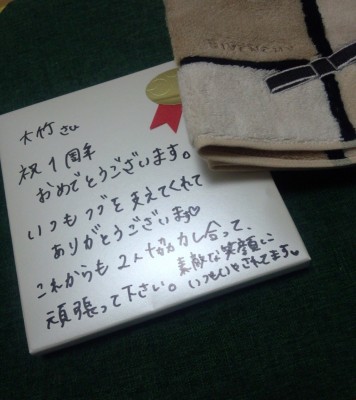 大竹さん
祝1周年
おめでとうございます。
いつも を支えてくれて
ありがとうございます♡
これからも2人協力し合って、
頑張って下さい。素敵な笑顔に
いつもいやされてます♡